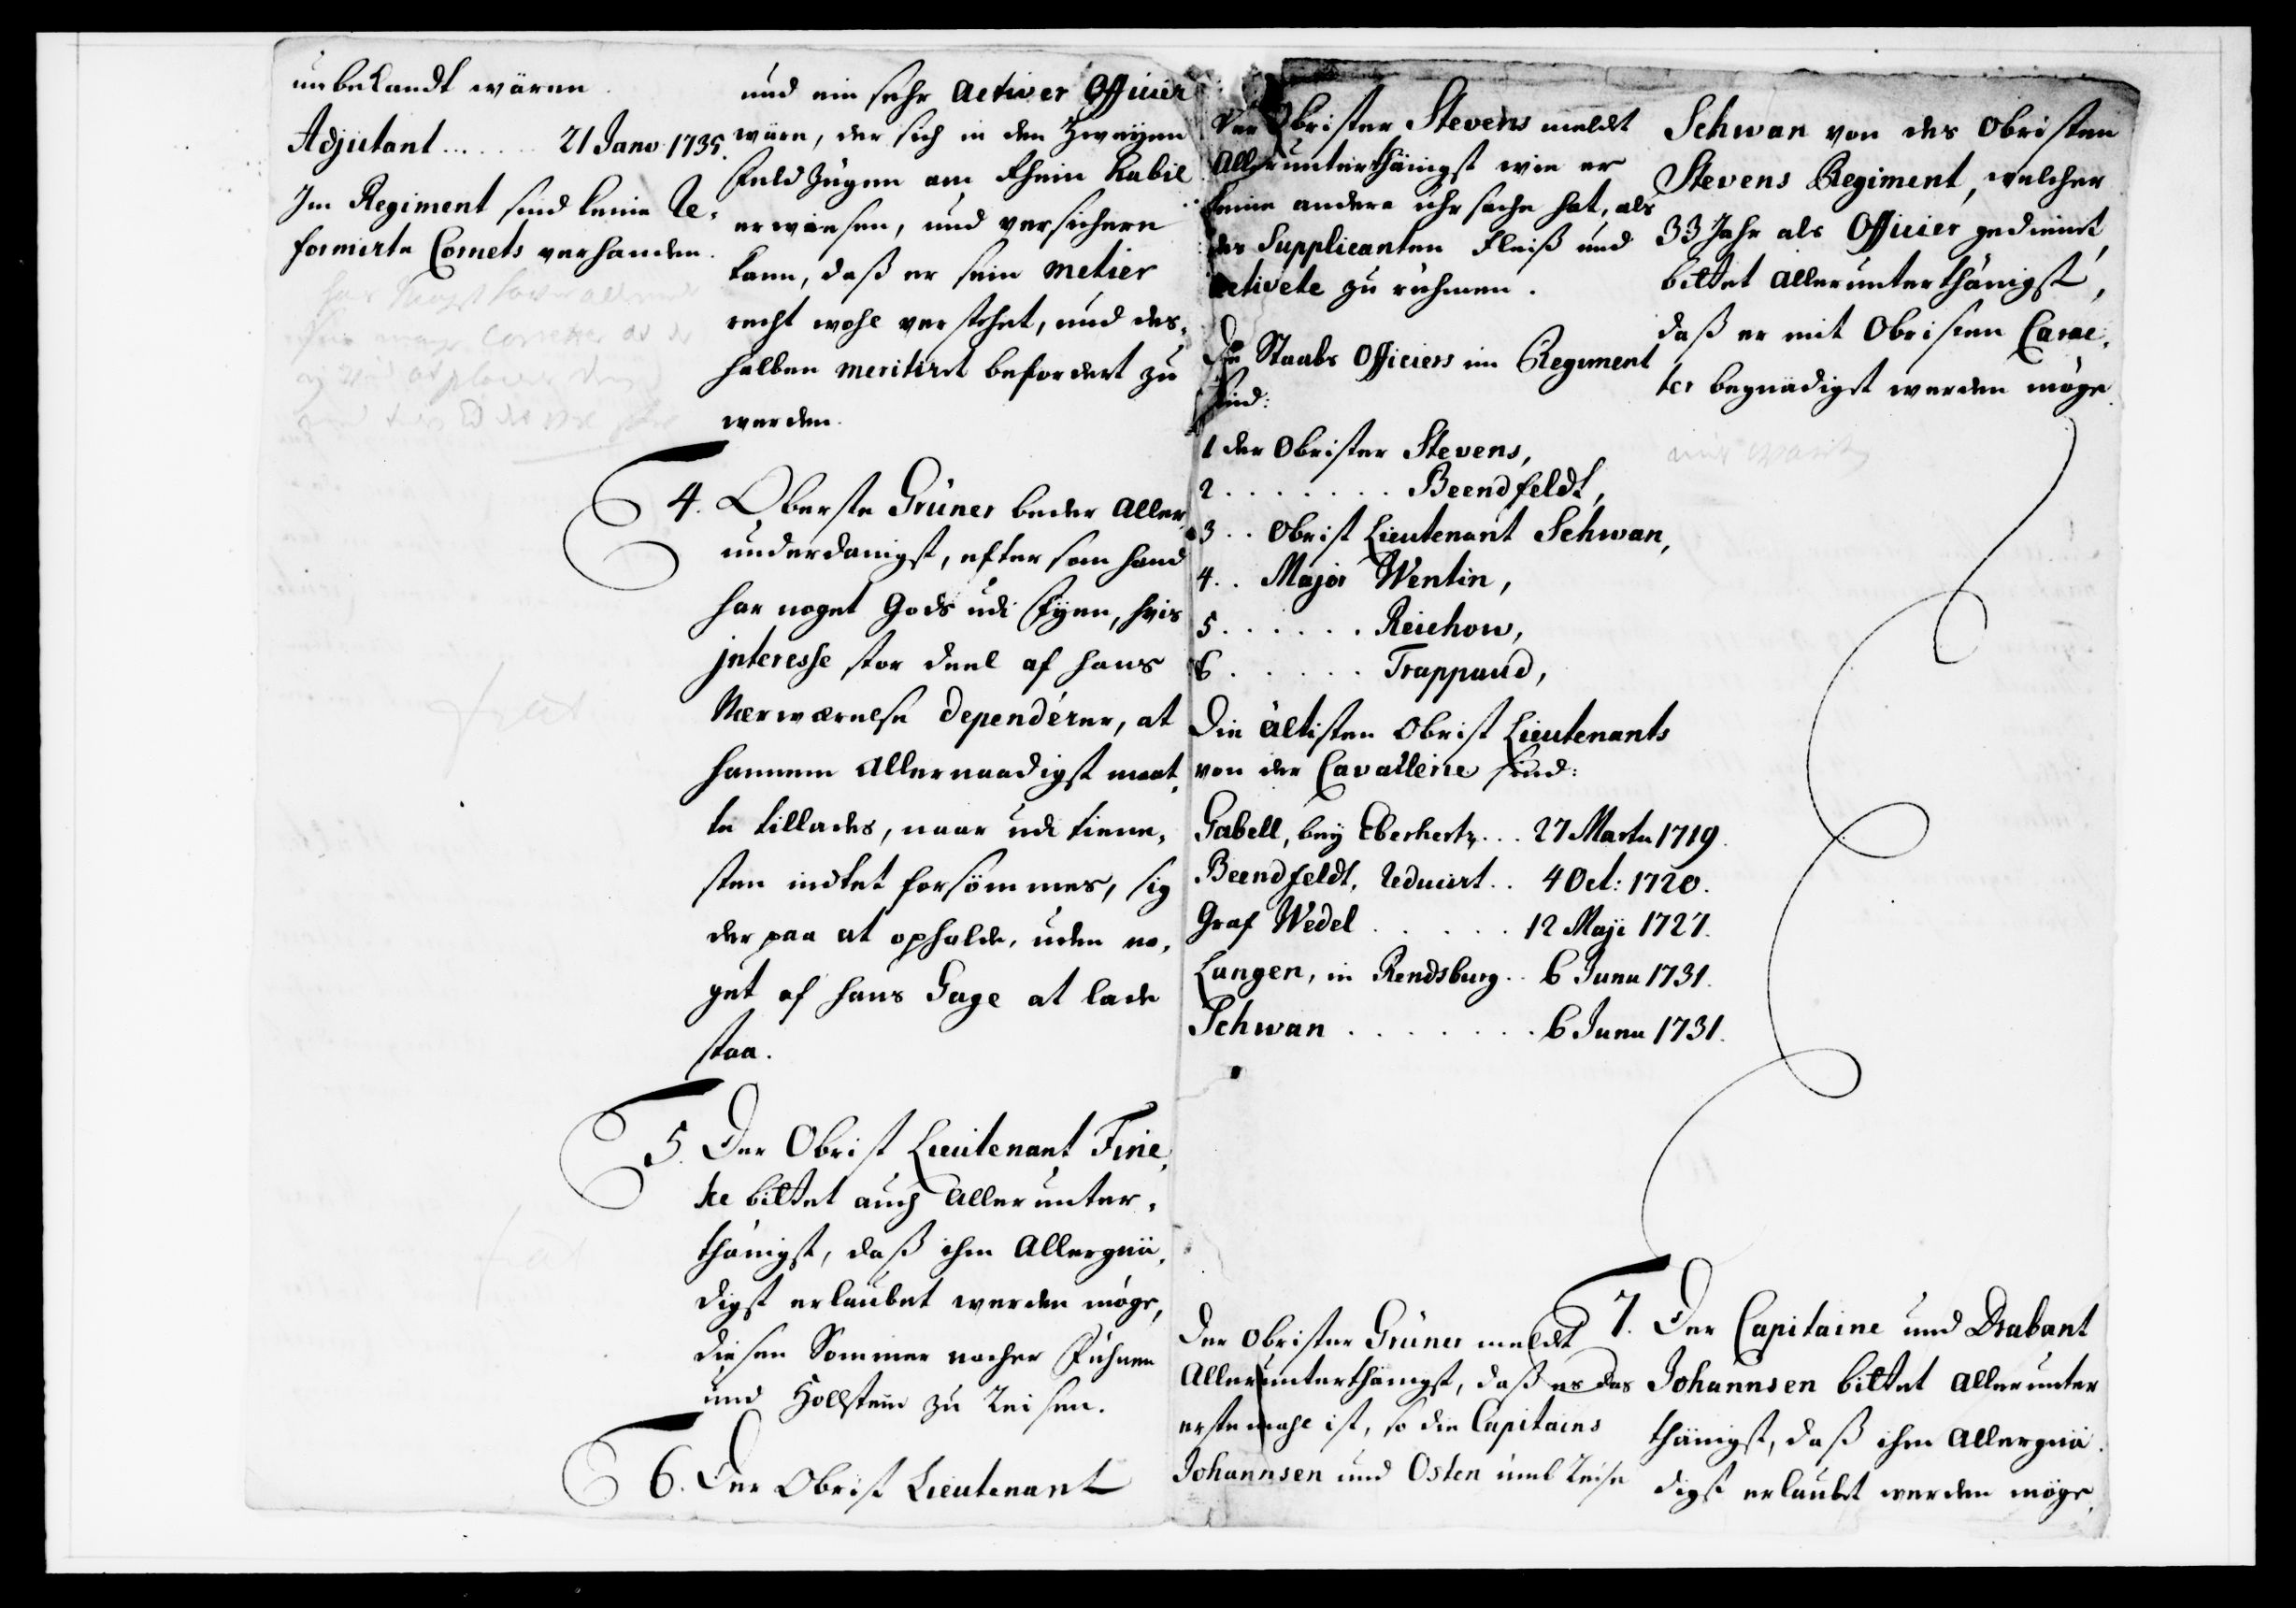 unbekandt wären.
Adjutant ...... 21 Janv 1735.
Im Regiment sind keine Re-
formirte Cornets verhanden.
und ein sehr activer Officier
wäre, der sich in den Zweyen
Feld Zügen am Rhein habil
erwiesen, und versichern
kann, daß er sein metier
recht wohl verstehet, und des-
halben meritiret befordert zu
werden.
4. Oberste Grüner beder Aller-
underdanigst, efter som hand
har noget Gods udi Fyen, hvis
jnteresse stor deel af hans
Nærværelse dependérer, at
hannem Allernaadigst maat-
te tillades, naar udi tiene-
sten indtet forsömmes, sig
der paa at opholde, uden no-
get af hans Gage at lade
staa.
fiat
5. Der Obrist Lieutenant Finc-
ke bittet auch Allerunter-
thänigst, daß ihm Allergnä-
digst erlaubet werden möge,
diesen Sommer nacher Fühnen
und Hollstein zu Reisen.
fiat
6. Der Obrist Lieutenant
Der Obrister Stevens meldt
Allerunterthänigst wie er
keine andere uhrsache hat, als
des Supplicanten Fleiß und
activete zu rühmen.
Die Staabs Officiers im Regiment
sind:
1 der Obrister Stevens,
2 ........ Beendfeldt,
3 .. Obrist Lieutenant Schwan,
4 .. Major Wentin,
5 ...... Reichow,
6 ...... Trappaud,
Die ältisten Obrist Lieutenants
von der Cavallerie sind:
Gabell, bey Eberhertz ... 27 Marty 1719.
Beendfeldt, Reducirt .. 4 Oct: 1720.
Graf Wedel ...... 12 Maji 1727.
Langen, in Rendsburg .. 6 Juny 1731.
Schwan ....... 6 Juny 1731.
Der Obrister Grüner meldt
Allerunterthänigst, daß es das
erstemahl ist, so die Capitains
Johannsen und Osten umb Reise
Schwan von des Obristen
Stevens Regiment, welcher
33 Jahr als Officier gedienet,
bittet Allerunterthänigst,
daß er mit Obristen Carac-
ter begnädigst werden möge.
7. Der Capitaine und Drabant
Johannsen bittet Allerunter
thänigst, daß ihm Allergnä-
digst erlaubet werden möge,